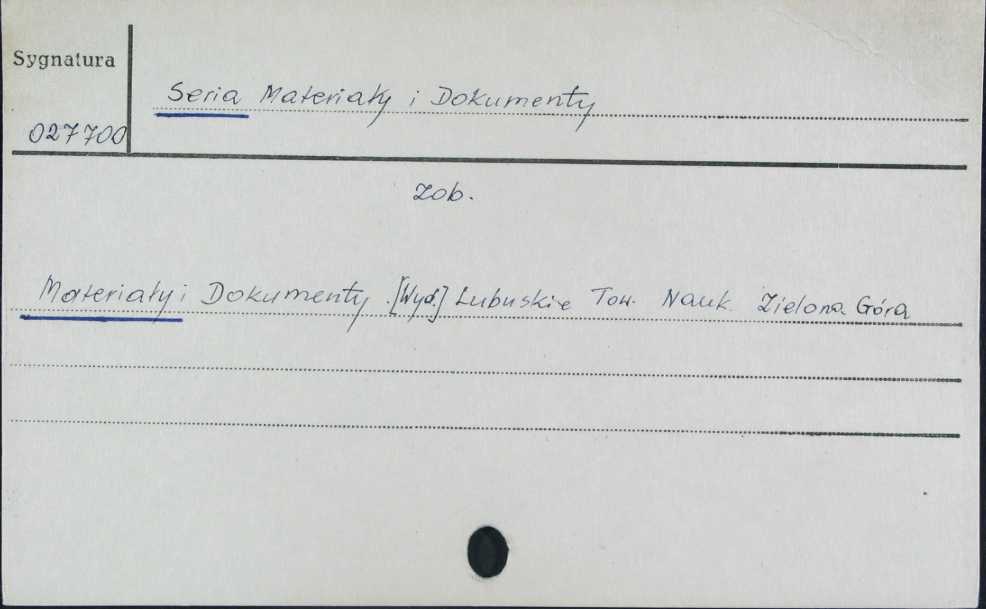 Sygnatura
Seria Materiały i Dokumenty
027700
Zob.
Materiały i Dokumenty. [Wyd.] Lubuskie Tow. Nauk. Zielona Góra